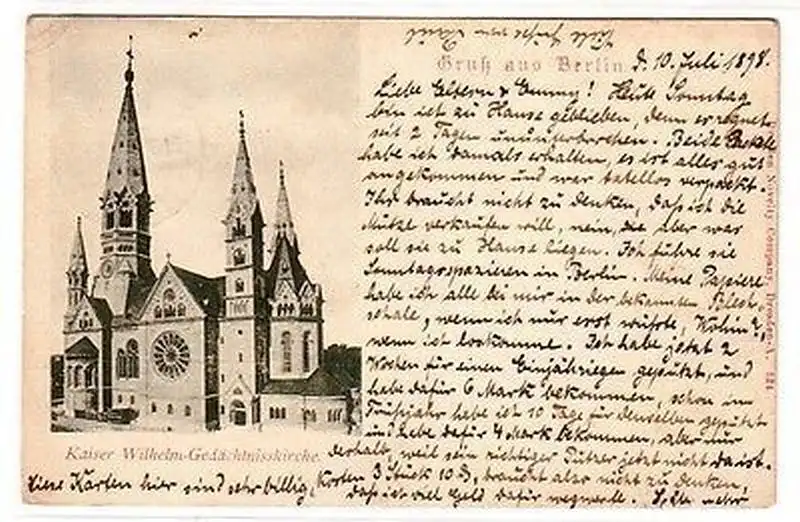 Gruß aus Berlin d. 10. Juli 1898.
Liebe Eltern & Emmy! Heute Sonntag
bin ich zu Hause geblieben, denn es regnet
seit 2 Tagen ununterbrochen. Beide
habe ich damals erhalten, es ist alles gut
angekommen und war tatellos verpackt.
Ihr braucht nicht zu denken, daß ich die
Mütze verkaufen will, nein, die aber was
soll sie zu Hause liegen. Ich führe sie
Sonntags spazieren in Berlin. Meine Papiere
habe ich alle bei mir in der bekannten Blech
schale, wenn ich nur erst wüßte, Wohin?
wenn ich loskomme. Ich habe jetzt 2
Wochen für einen Einjährigen geputzt, und
habe dafür 6 Mark bekommen, schon im
Frühjahr habe ich 10 Tage für denselben geputzt
und habe dafür 4 Mark bekommen, aber nur
deshalb, weil sein richtiger Putzer jetzt nicht da ist.
Kaiser Wilhelm-Gedächtniskirche.
Diese Karten hier sind sehr billig, kosten 3 Stück 10 d, braucht also nicht zu denken,
daß ich viel Geld dafür wegwerfe. mehr
Novelty Company, Dresden-A.